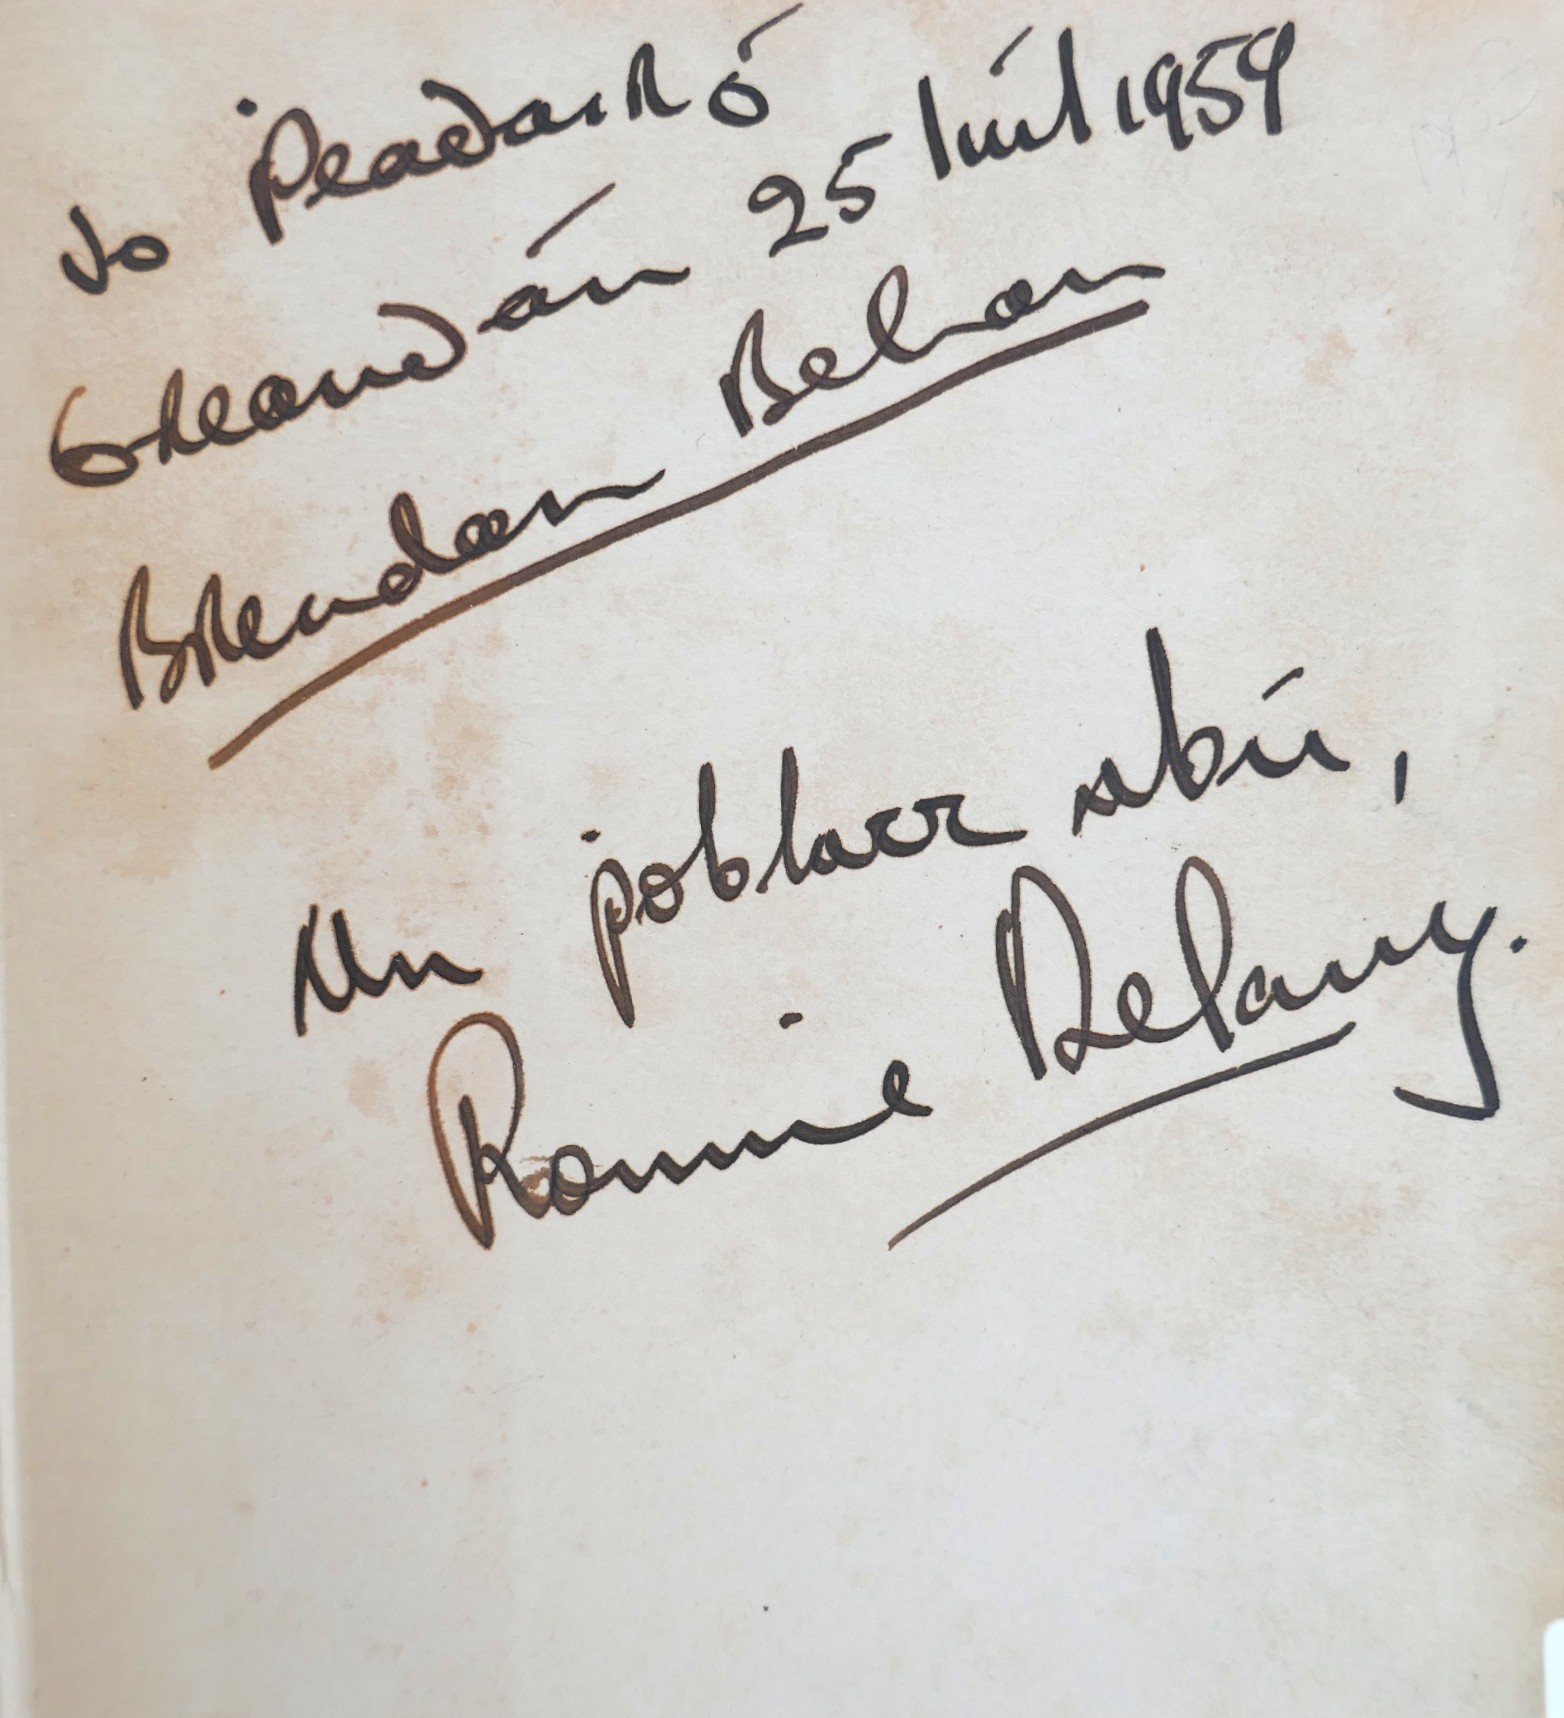 do Ṗeadair ó
Breandán 25 Iúil 1959
Brendan Behan
An ṗoblact abú,
Ronnie Delany.